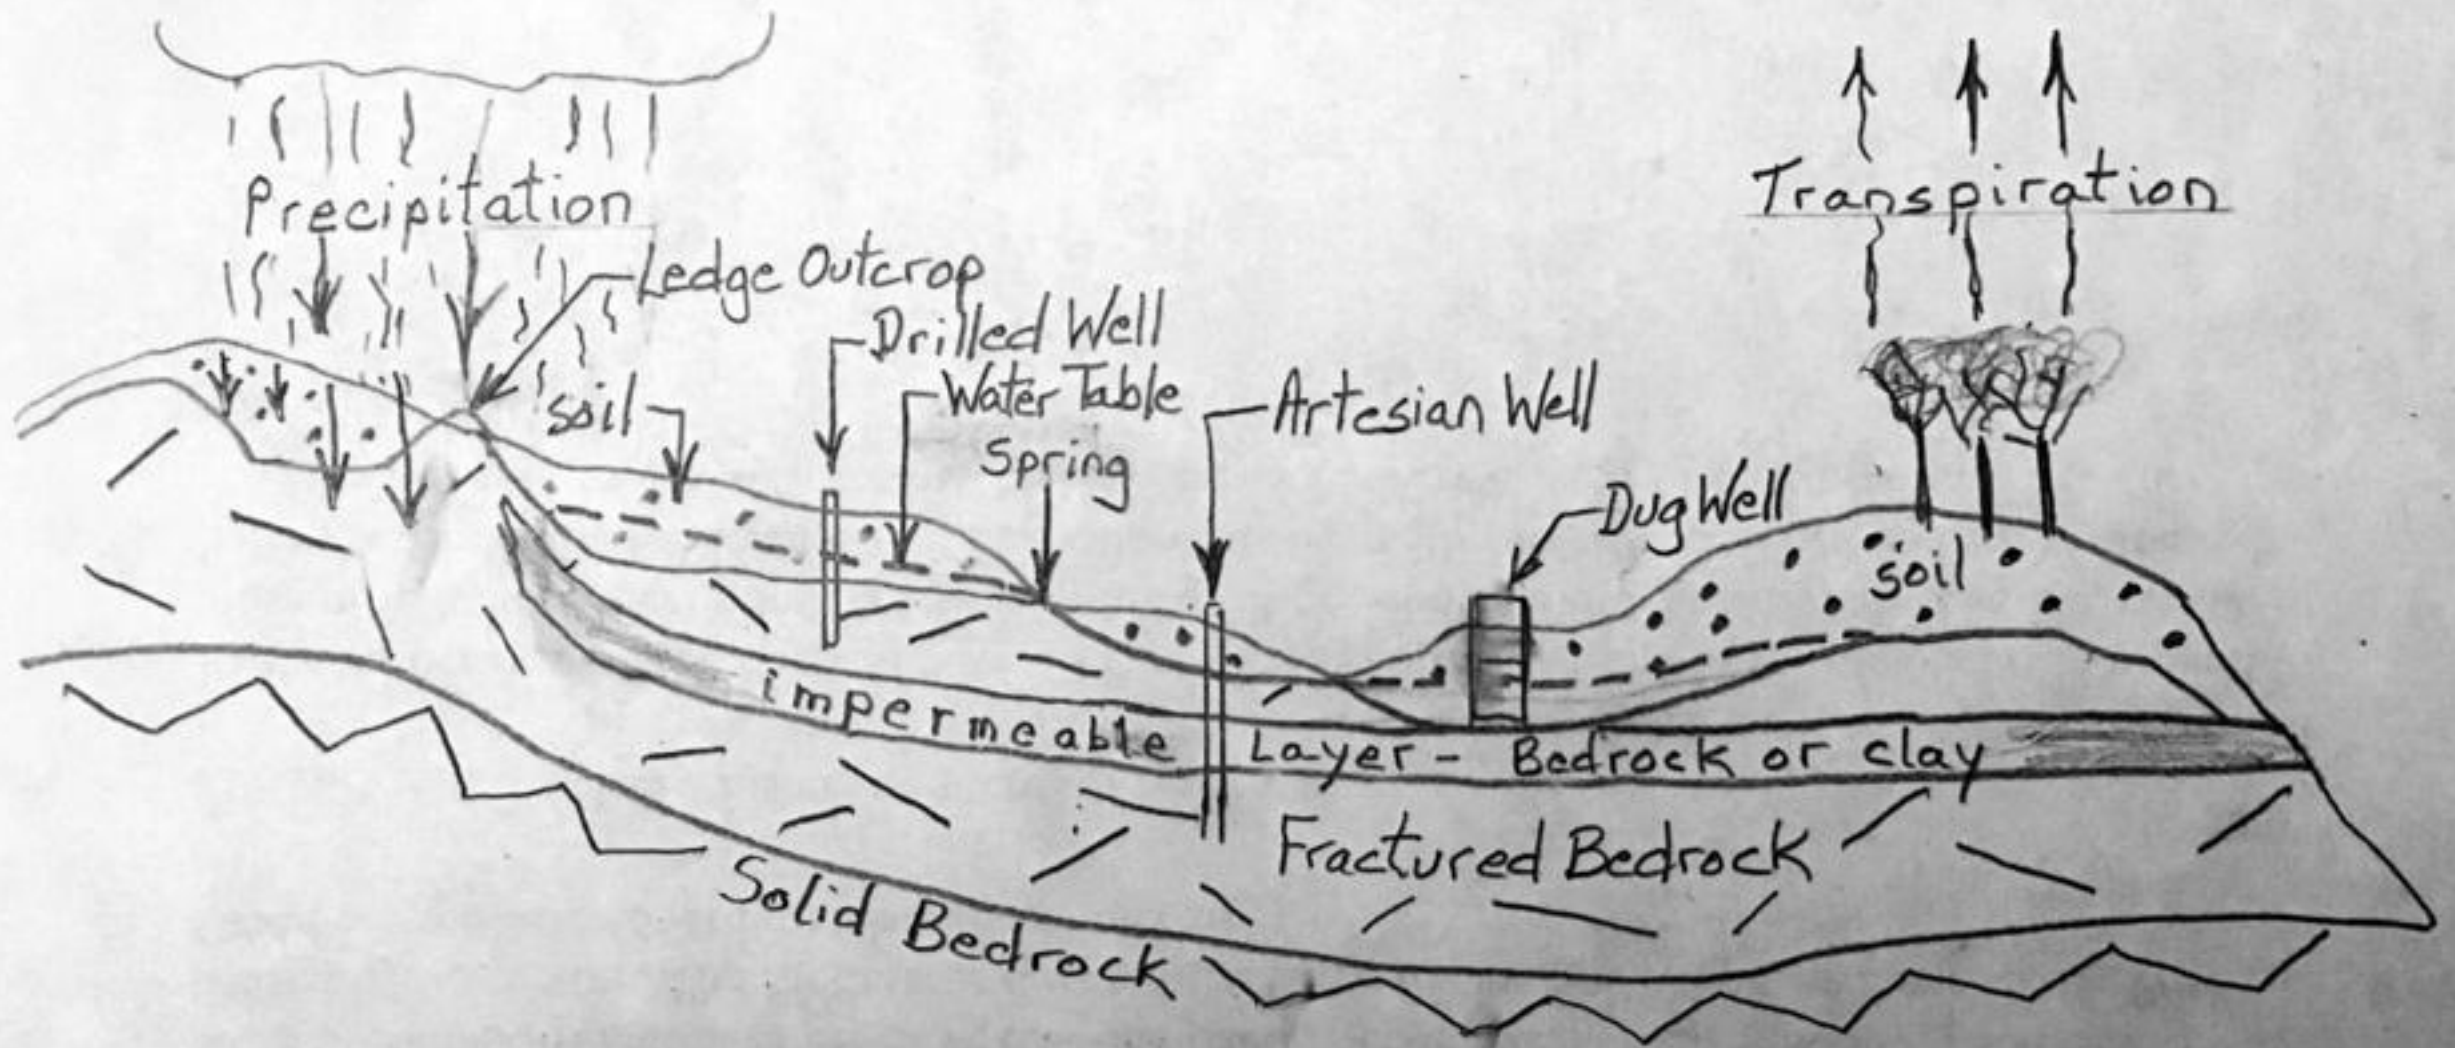 Precipitation
Transpiration
Ledge Outcrop
Drilled Well
soil
Water Table
Spring
Artesian Well
Dug Well
soil
impermeable Layer - Bedrock or clay
Fractured Bedrock
Solid Bedrock